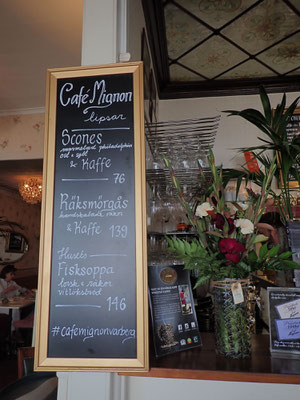 Café Mignon
tipsar
Scones
marmelad philadelphia
ost & sylt
& Kaffe
76
Räksmörgås
handskalade räkor
& Kaffe 139
Husets
Fisksoppa
torsk & räkor
vitlöksbröd
146
#cafemignonvarberg